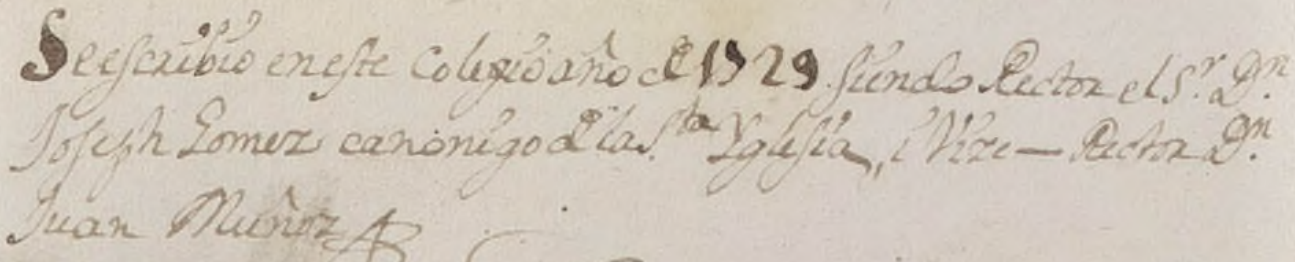 Se escribio en este Colegio año de 1729 siendo Rector el Sr. Dn.
Joseph Gomez canonigo de la Sta Yglesia, i Vize-Rector Dn.
Juan Muñoz